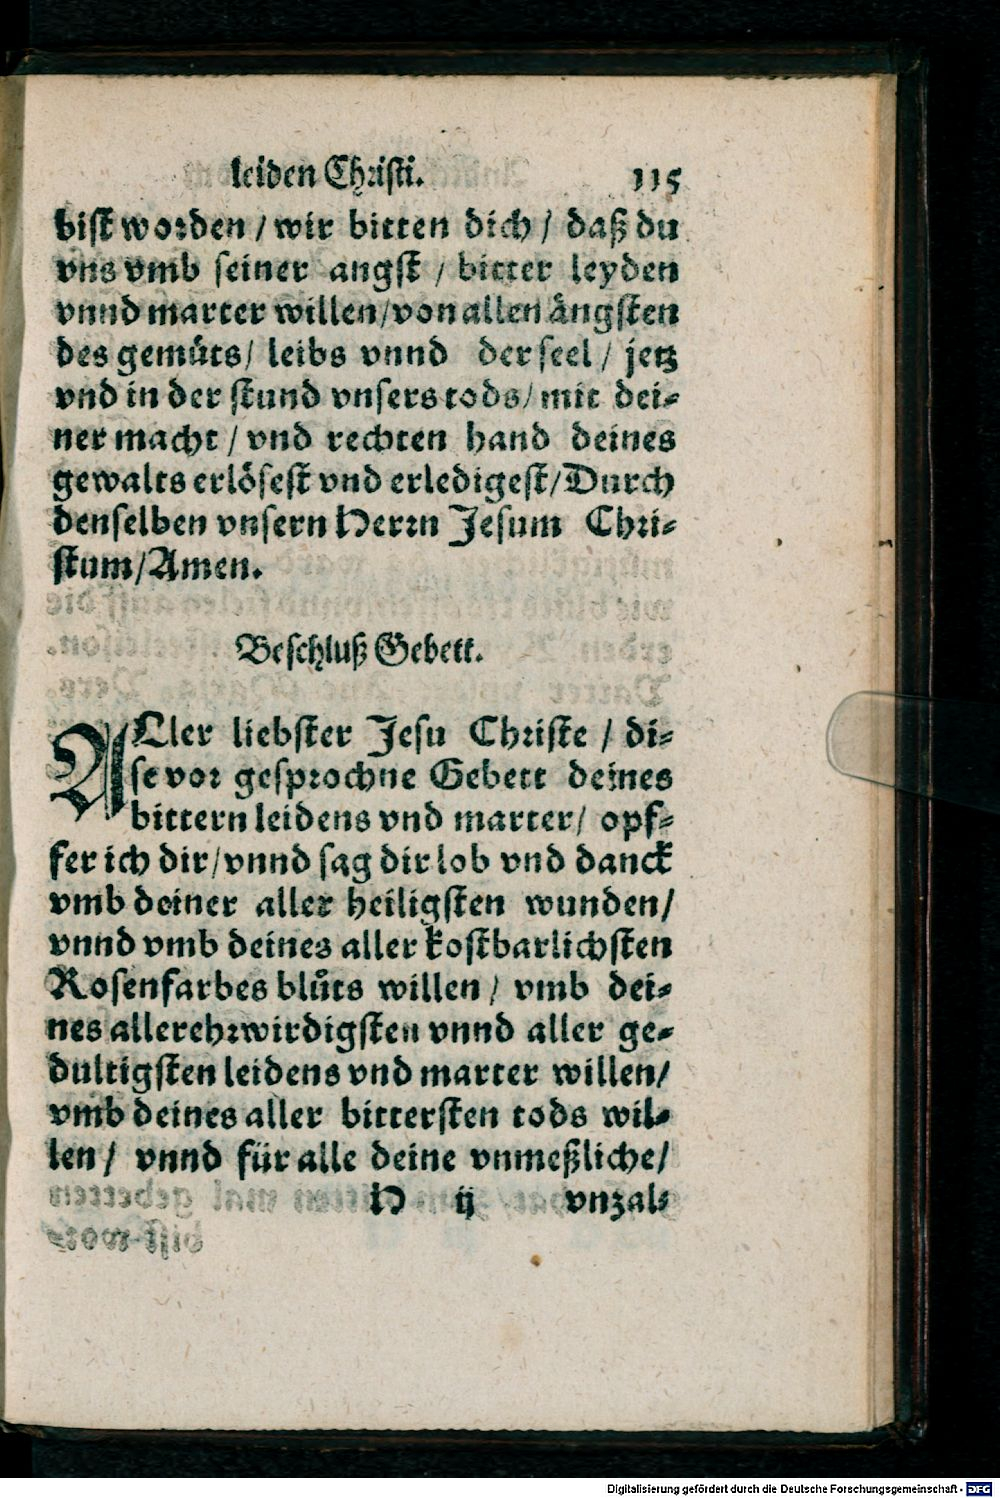 leiden Christi. 115
bist worden / wir bitten dich / daß du
vns vmb seiner angst / bitter leyden
vnnd marter willen/von allen ängsten
des gemüts/ leibs vnnd der seel / jetz
vnd in der stund vnsers tods/ mit dei⸗
ner macht / vnd rechten hand deines
gewalts erlösest vnd erledigest/Durch
denselben vnsern Herrn Jesum Chri⸗
stum/Amen.
Beschluß Gebett.
ALler liebster Jesu Christe / di⸗
se vor gesprochne Gebett deines
bittern leidens vnd marter/ opf⸗
fer ich dir/vnnd sag dir lob vnd danck
vmb deiner aller heiligsten wunden/
vnnd vmb deines aller kostbarlichsten
Rosenfarbes blůts willen / vmb dei⸗
nes allerehrwirdigsten vnnd aller ge⸗
dultigsten leidens vnd marter willen/
vmb deines aller bittersten tods wil⸗
len / vnnd für alle deine vnmeßliche/
H ij vnzal⸗
Digitalisierung gefördert durch die Deutsche Forschungsgemeinschaft - DFG